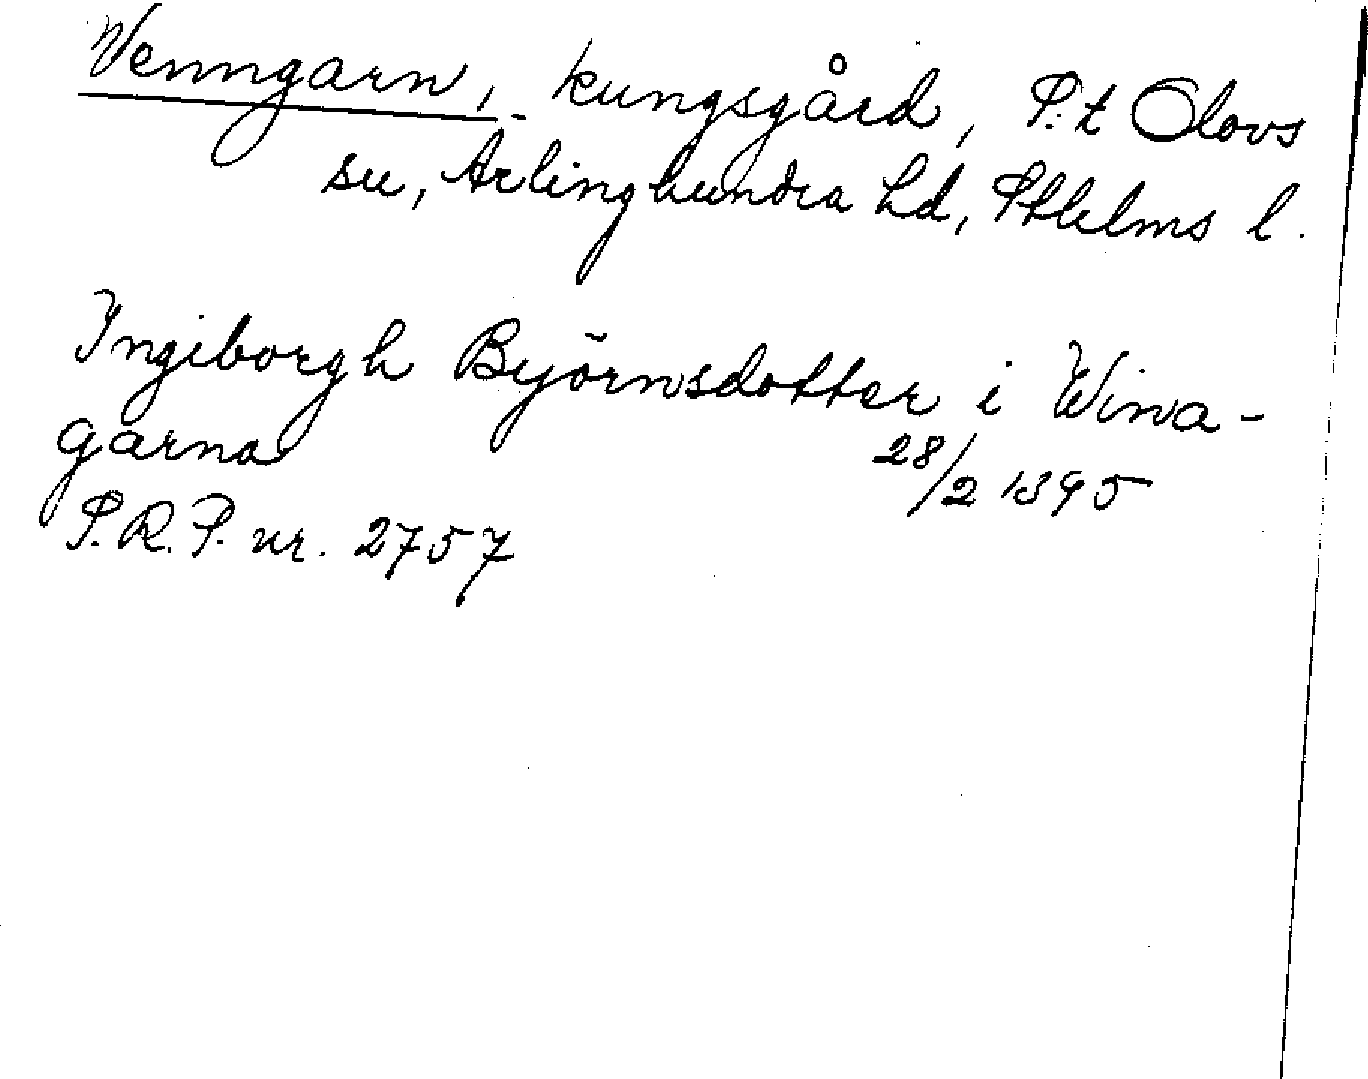 Venngarn, kungsgård, S:t Olovs
sn, Ärlinghundra hd, Sthlms l.
Ingiborgh Byörnsdotter i Wina-
garna
28/2 1395
S.R.P. nr. 2757